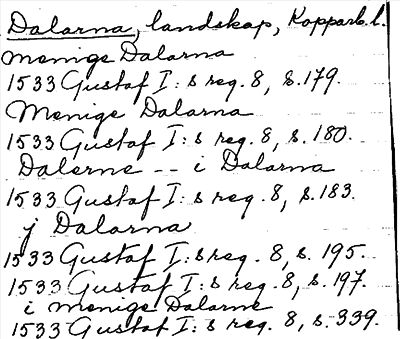 Dalarna, landskap, Kopparb. l.
menige Dalarna
1533 Gustaf I:s reg. 8, s. 179.
Menige Dalarna
1533 Gustaf I:s reg. 8, s. 180.
Dalerne -- i Dalarna
1533 Gustaf I:s reg. 8, s. 183.
j Dalarna
1533 Gustaf I:s reg. 8, s. 195.
1533 Gustaf I:s reg. 8, s. 197.
i menige Dalarne
1533 Gustaf I:s reg. 8, s. 339.